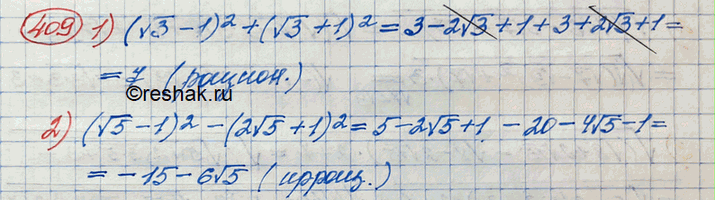 409 1) (√3 − 1)² + (√3 + 1)² = 3 − 2√3 + 1 + 3 + 2√3 + 1 =
= 7 (рацион.)
©reshak.ru
2) (√5 − 1)² − (2√5 + 1)² = 5 − 2√5 + 1 − 20 − 4√5 − 1 =
= −15 − 6√5 (иррац.)